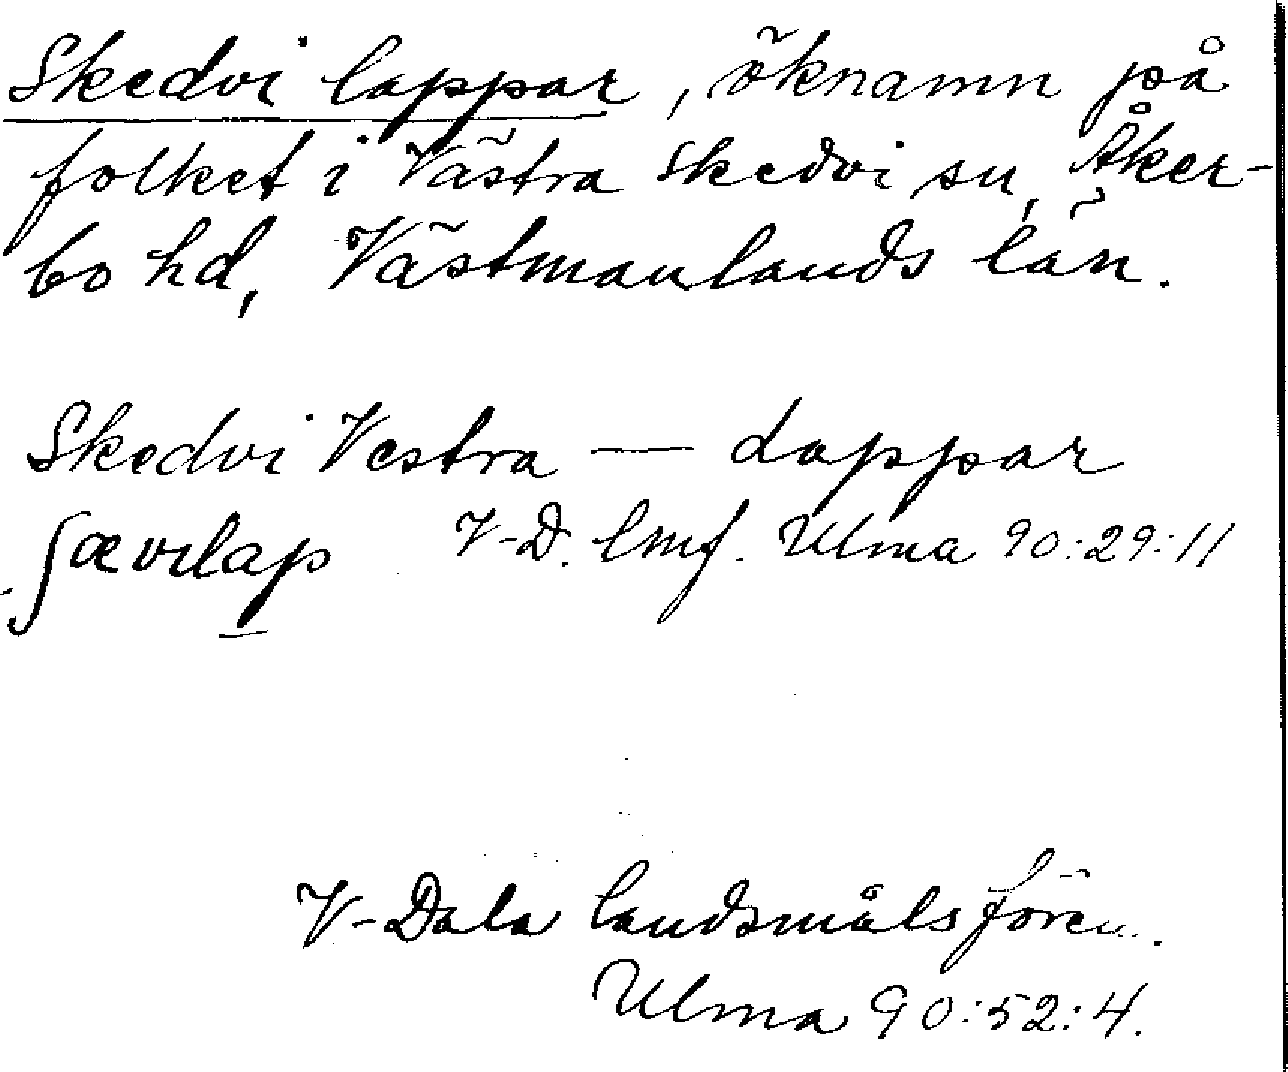 Skedvi lappar, öknamn på
folket i Västra Skedvi sn, Åker-
bo hd, Västmanlands län.
Skedvi Vestra — Lappar
ʃævɩlap V-D. lmf. Ulma 90:29:11
V-Dala landsmålsfören.
Ulma 90:52:4.